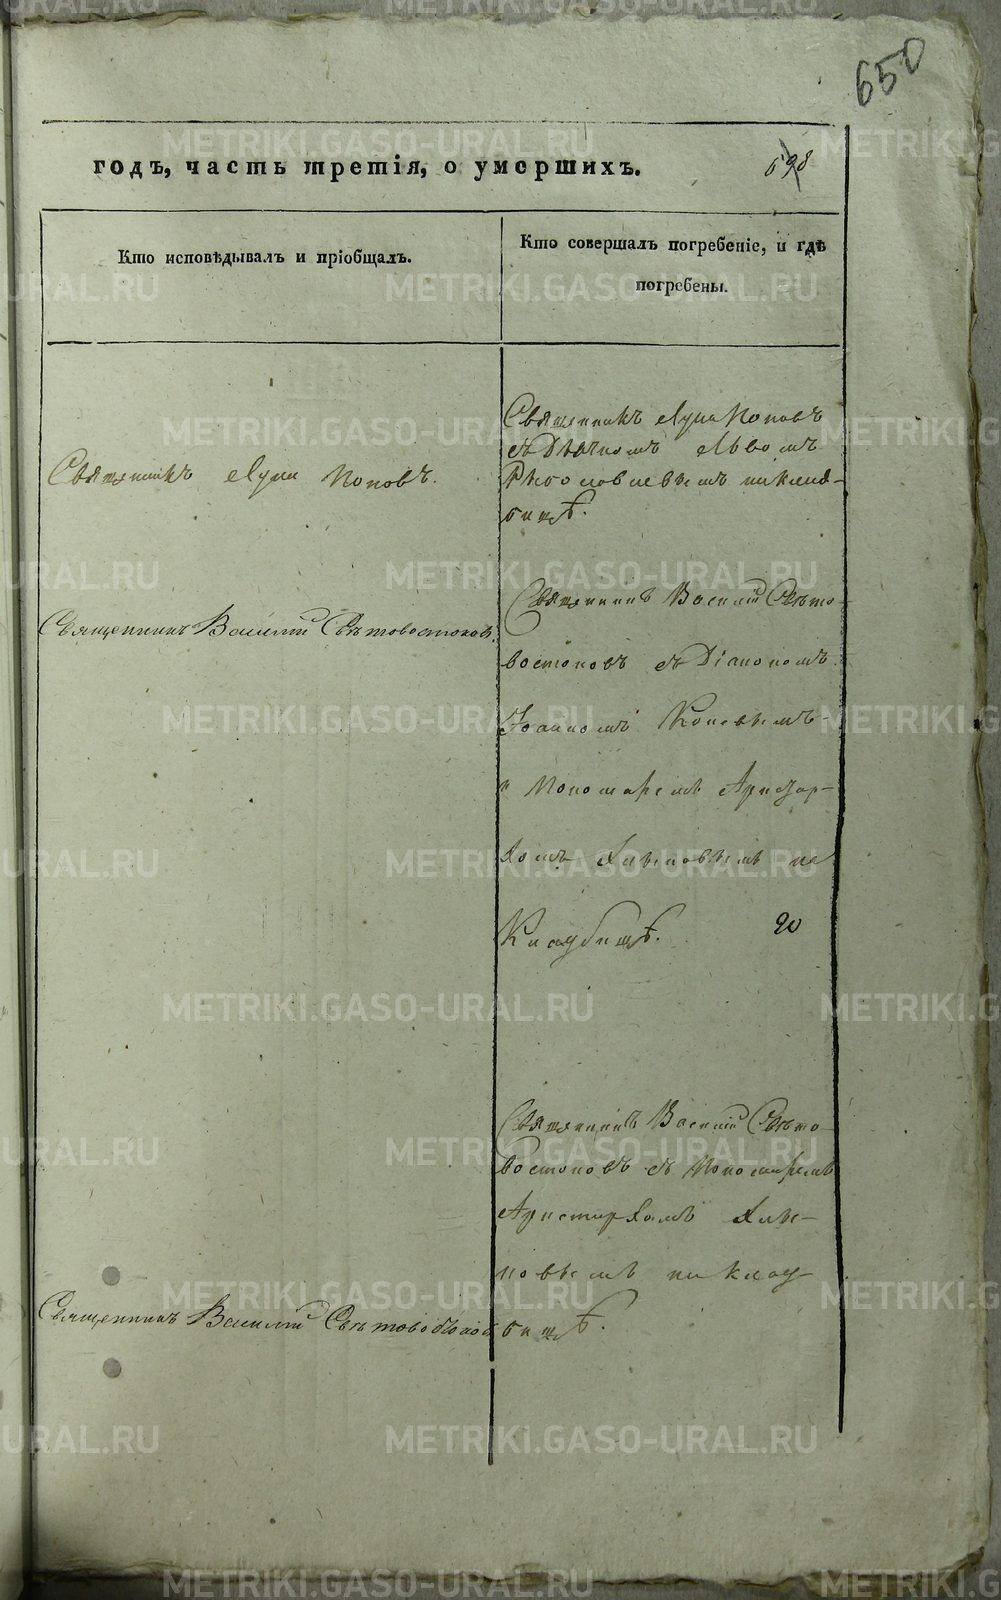 650
годъ, часть третія, о умершихъ.
698
Кто исповѣдывалъ и пріобщалъ.
Кто совершалъ погребеніе, и гдѣ
погребены.
Священникъ Лука Поповъ.
Священникъ Лука Поповъ
съ Дьячкомъ Львомъ
на клад-
бищѣ.
Священникъ Василій Свѣтовостоковъ.
Священникъ Василій Свѣто-
востоковъ съ Діакономъ
Іоанномъ Коневымъ
и Пономаремъ Аристар-
хомъ Хлыновымъ на
Кладбищѣ.
20
Священникъ Василій Свѣтовостоковъ
Священникъ Василій Свѣто-
востоковъ съ Пономаремъ
Аристархомъ Хлы-
новымъ на клад-
бищѣ.
METRIKI.GASO-URAL.RU